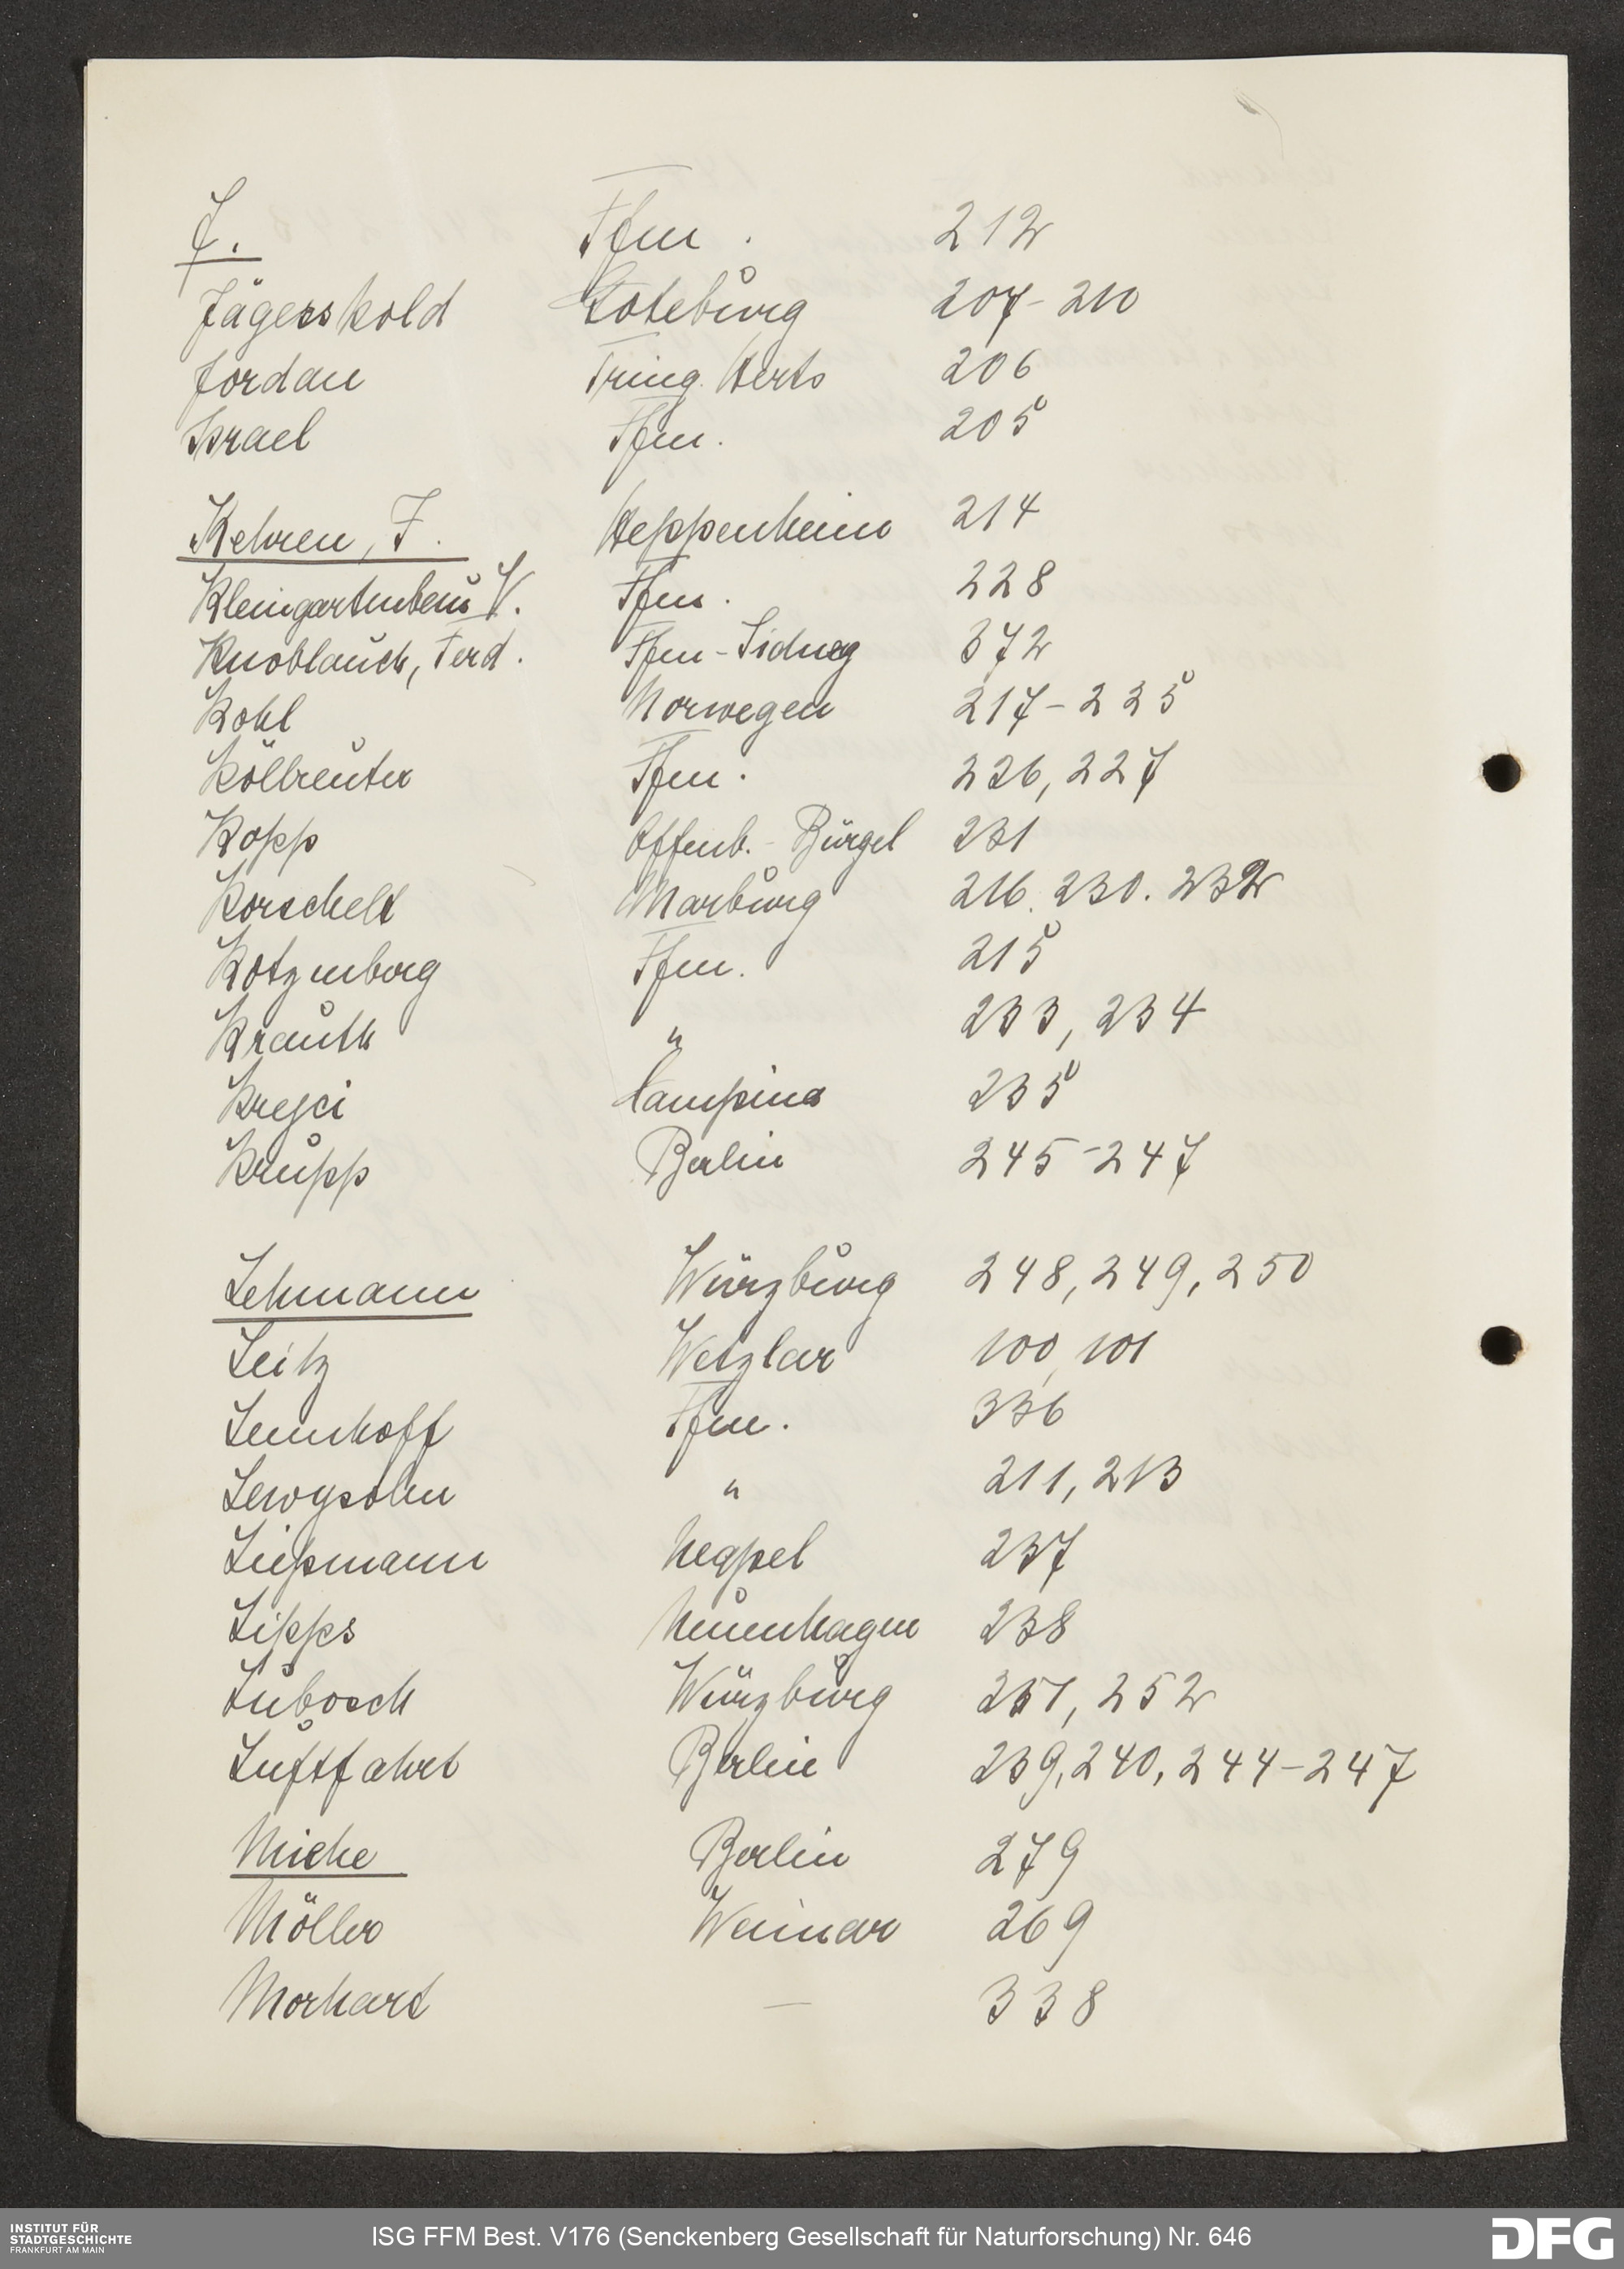 J. Ffm. 212
Jägerskold Goteburg 207-210
Jordan Tring. Herts 206
Israel Ffm. 205
Kehren, F. Heppenheim 214
Kleingartenbau V. Ffm. 228
Knoblauch, Ferd. Ffm-Sidney 372
Kohl Norwegen 217-225
Kölbreuter Ffm. 226, 227
Kopp Offenb.-Bürgel 231
Korschelt Marburg 216. 230. 232
Kotzenberg Ffm. 215
Krauth " 233, 234
Krejci Campina 235
Krupp Berlin 245-247
Lehmann Würzburg 248, 249, 250
Leitz Wetzlar 100, 101
Lennhoff Ffm. 336
Lewysohn " 211, 213
Liepmann Neapel 237
Lipps Neuenhagen 238
Lubosch Würzburg 251, 252
Luftfahrt Berlin 239, 240, 244-247
Miehe Berlin 279
Möller Weimar 269
Morhart — 338
INSTITUT FÜR
STADTGESCHICHTE
FRANKFURT AM MAIN
ISG FFM Best. V176 (Senckenberg Gesellschaft für Naturforschung) Nr. 646
DFG